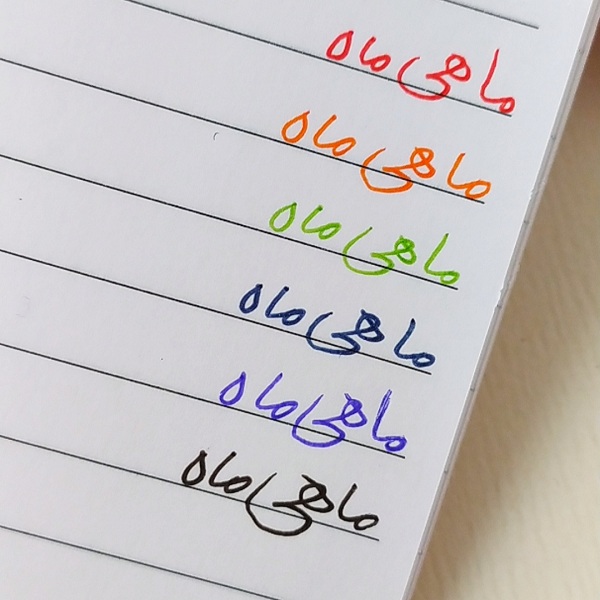 ماهی ماه
ماهی ماه
ماهی ماه
ماهی ماه
ماهی ماه
ماهی ماه